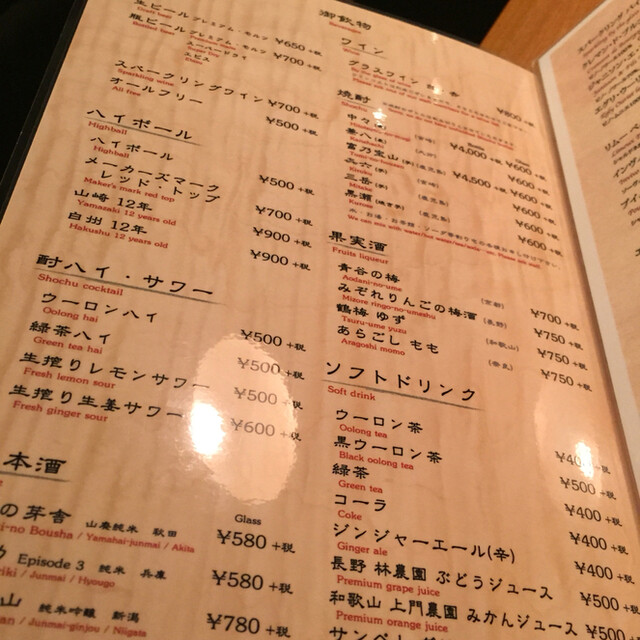 御飲物
生ビール プレミアム・モルツ ¥650+税
瓶ビール プレミアム・モルツ ¥700+税
スーパードライ
エビス
スパークリングワイン ¥700+税
Sparkling wine
オールフリー ¥500+税
All free
ハイボール
Highball
ハイボール ¥500+税
Highball
メーカーズマーク
レッド・トップ ¥700+税
Maker's mark red top
山崎 12年 ¥900+税
Yamazaki 12 years old
白州 12年 ¥900+税
Hakushu 12 years old
酎ハイ・サワー
Shochu cocktail
ウーロンハイ ¥500+税
Oolong hai
緑茶ハイ ¥500+税
Green tea hai
生搾りレモンサワー ¥500+税
Fresh lemon sour
生搾り生姜サワー ¥600+税
Fresh ginger sour
本酒
Glass
の芽舎 山廃純米 秋田 ¥580+税
i-no Bousha / Yamahai-junmai / Akita
Episode 3 純米 兵庫 ¥580+税
riki / Junmai / Hyougo
山 純米吟醸 新潟 ¥780+税
an / Junmai-ginjou / Niigata
ワイン
グラスワイン ¥800+税
焼酎
中々(麦)
兼八(麦) ¥4,000+税 ¥600+税
富乃宝山(芋) ¥600+税
¥4,500+税 ¥600+税
三岳(芋) ¥600+税
黒瀬 ¥600+税
果実酒
Fruits liqueur
青谷の梅 (京都) ¥700+税
Aodani-no-ume
みぞれりんごの梅酒 (長野) ¥750+税
Mizore ringo-no-umeshu
鶴梅 ゆず (和歌山) ¥750+税
Tsuru-ume yuzu
あらごし もも (奈良) ¥750+税
Aragoshi momo
ソフトドリンク
Soft drink
ウーロン茶
Oolong tea
黒ウーロン茶 ¥500+税
Black oolong tea
緑茶 ¥400+税
Green tea
コーラ ¥400+税
Coke
ジンジャーエール(辛) ¥400+税
Ginger ale
長野 林農園 ぶどうジュース ¥500+税
Premium grape juice
和歌山 上門農園 みかんジュース ¥500+税
Premium orange juice